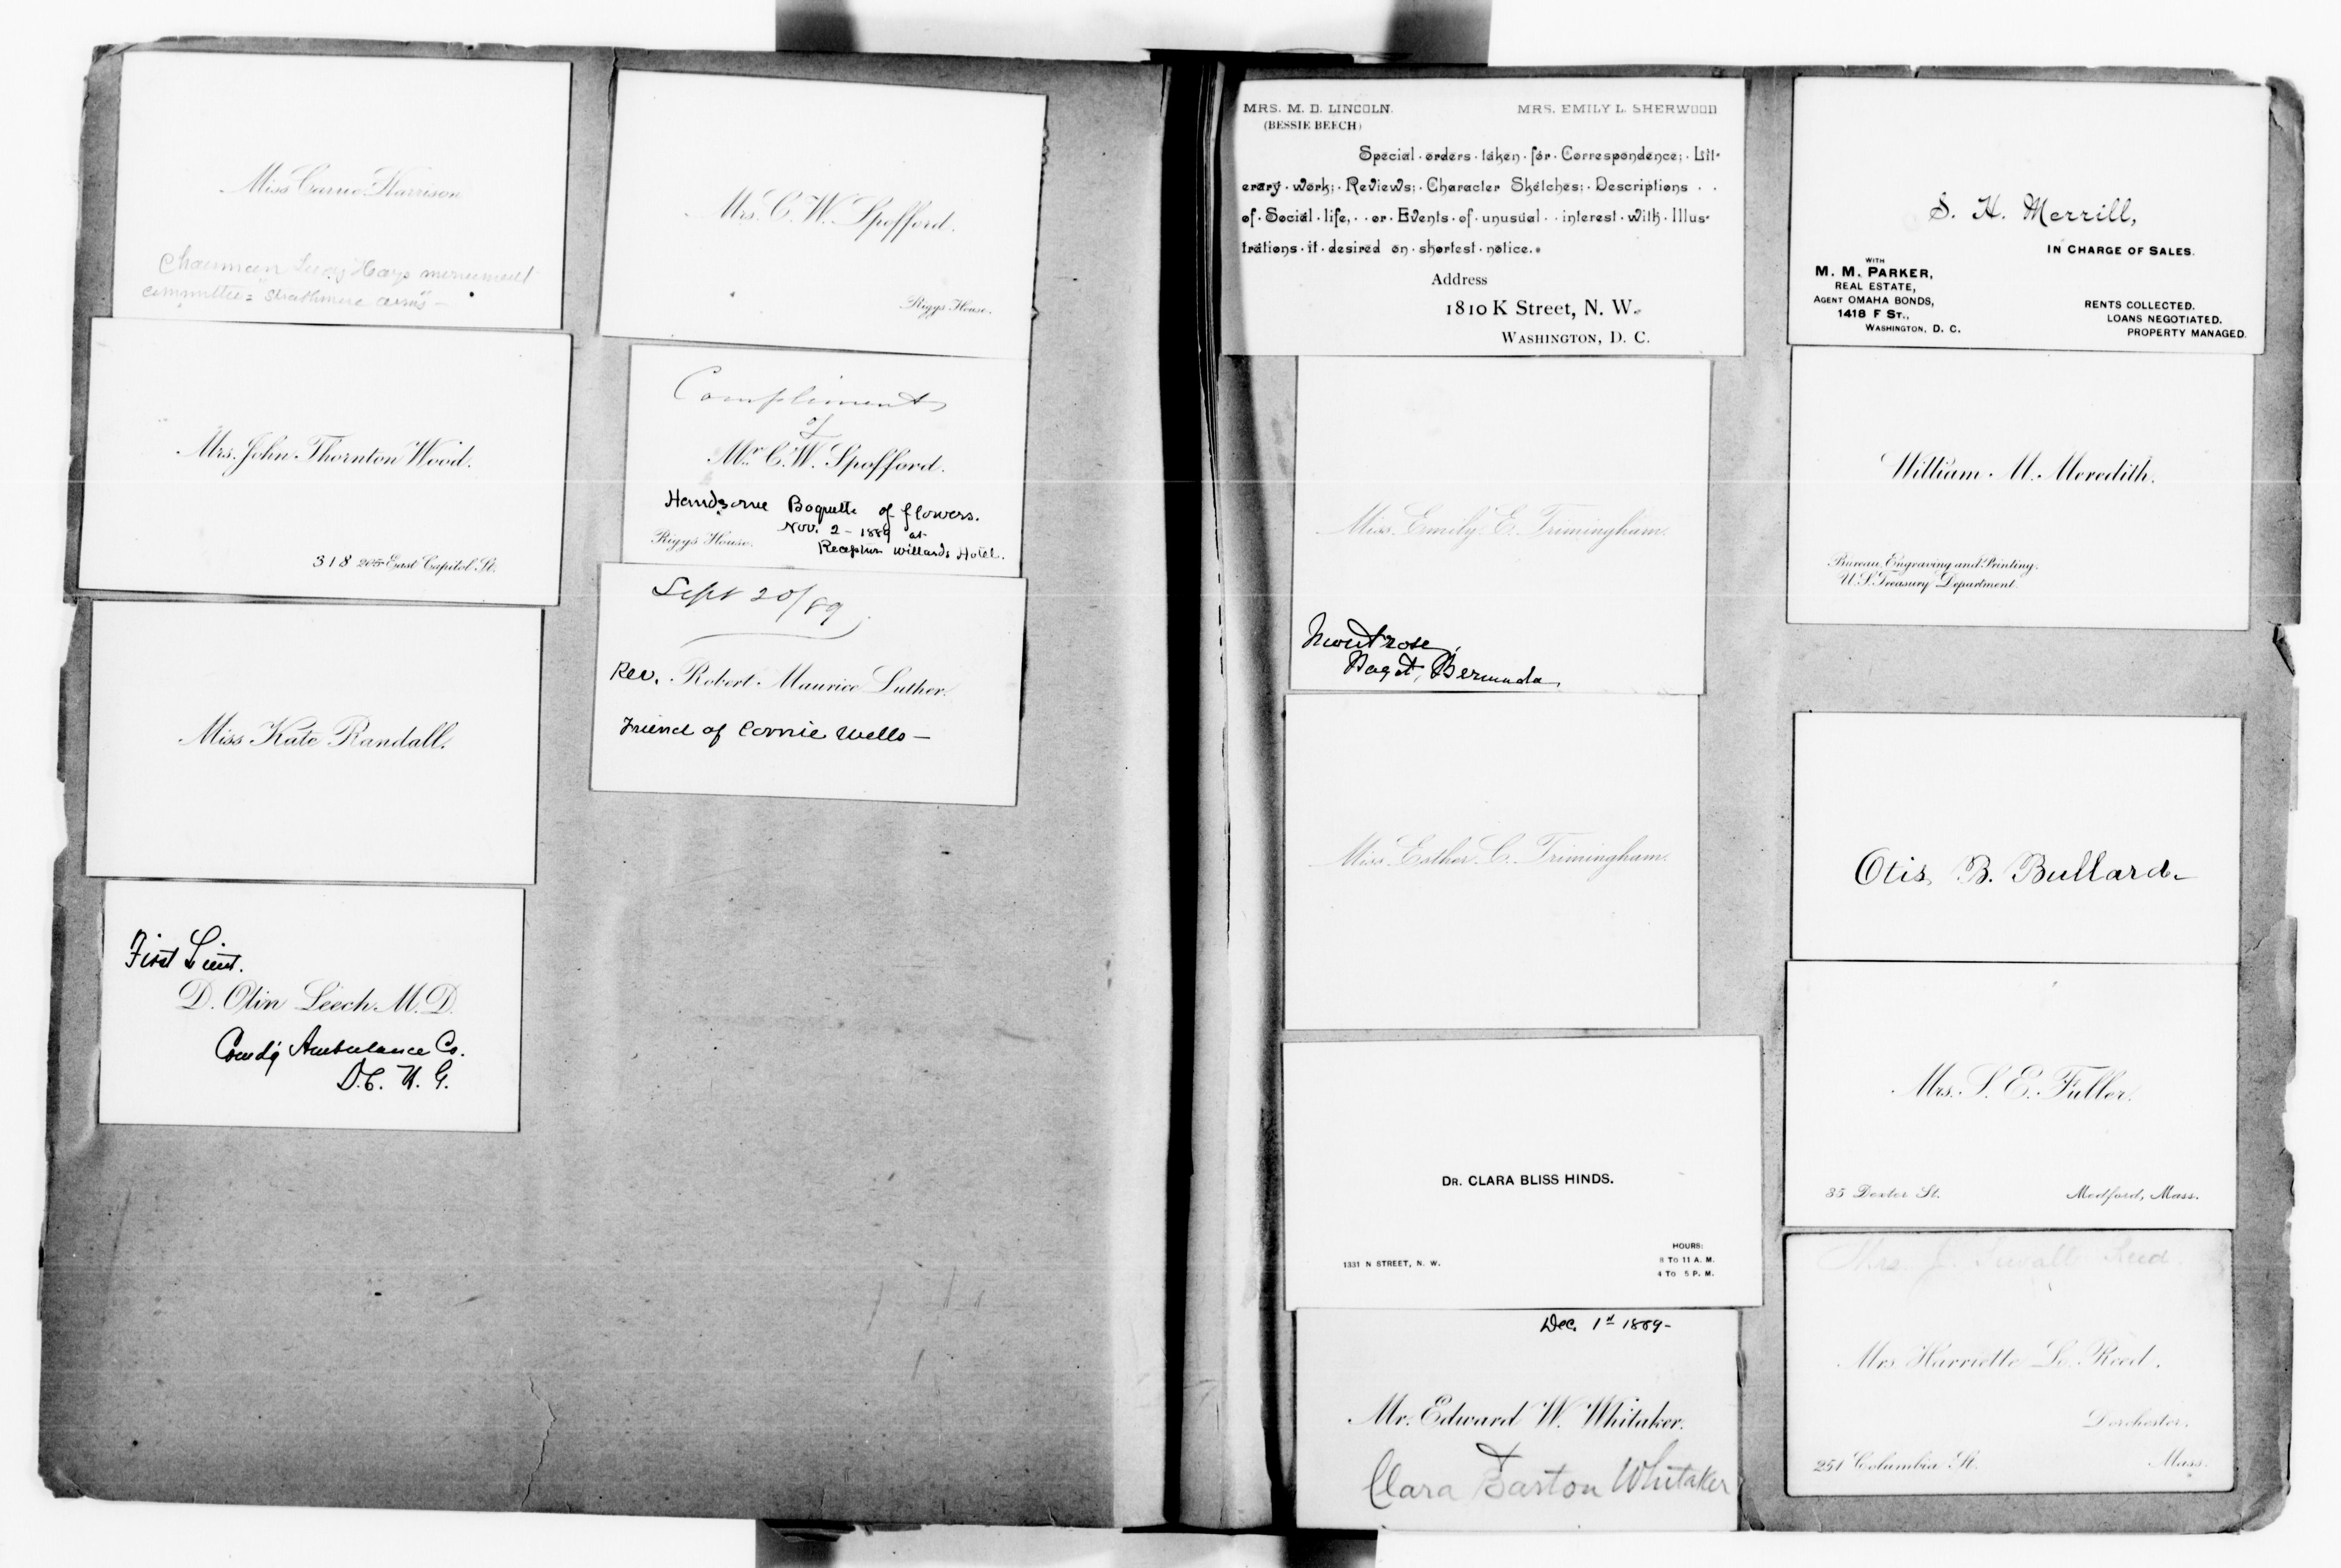 Miss Carrie Harrison
Chairman Lucy Hays monument
committee = "Strathmore arms" —
Mrs. John Thornton Wood.
318 205 East Capitol St.
Miss Kate Randall.
First Lieut.
D. Olin Leech M.D.
Comd'g Ambulance Co.
D.C. N. G.
Mrs. C. W. Spofford.
Riggs House.
Compliments
of
Mrs. C. W. Spofford.
Handsome Boquette of flowers.
Nov. 2 - 1889 at
Riggs House.
Reception Willards Hotel.
Sept 20/89
Rev. Robert Maurice Luther.
Friend of Connie Wells —
MRS. M. D. LINCOLN. MRS. EMILY L. SHERWOOD
(BESSIE BEECH)
Special orders taken for Correspondence; Lit-
erary work; Reviews; Character Sketches; Descriptions
of Social life, or Events of unusual interest with Illus-
trations it desired on shortest notice.
Address
1810 K Street, N. W.
WASHINGTON, D. C.
Miss Emily E. Trimingham.
Montrose,
Paget, Bermuda
Miss Esther C. Trimingham.
DR. CLARA BLISS HINDS.
1331 N STREET, N. W.
HOURS:
8 TO 11 A. M.
4 TO 5 P. M.
Dec. 1st 1889-
Mr. Edward W. Whitaker.
Clara Barton Whitaker
S. H. Merrill,
IN CHARGE OF SALES.
WITH
M. M. PARKER,
REAL ESTATE,
AGENT OMAHA BONDS,
1418 F ST.,
WASHINGTON, D. C.
RENTS COLLECTED.
LOANS NEGOTIATED.
PROPERTY MANAGED.
William M. Meredith.
Bureau Engraving and Printing.
U. S. Treasury Department.
Otis B. Bullard-
Mrs. S. E. Fuller.
35 Dexter St. Medford, Mass.
Mrs. J.
Mrs Harriette L. Reed.
Dorchester.
251 Columbia St. Mass.